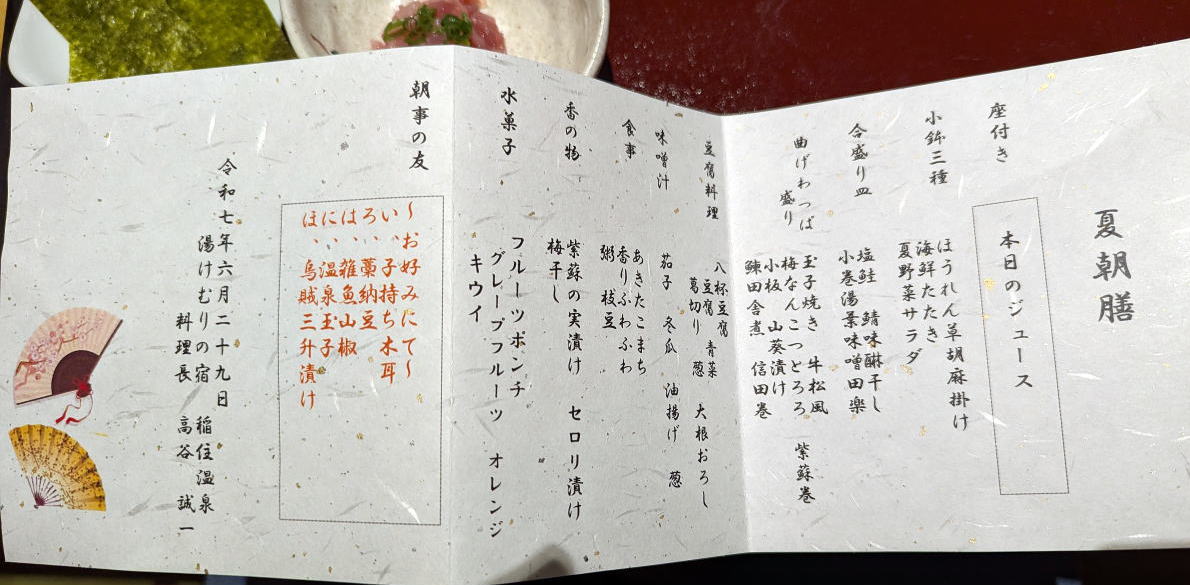 夏朝膳
座付き
本日のジュース
小鉢三種
ほうれん草胡麻掛け
海鮮たたき
夏野菜サラダ
合盛り皿
塩鮭 鯖味醂干し
小巻湯葉味噌田楽
曲げわっぱ盛り
玉子焼き 牛松風 紫蘇巻
梅なんこつとろろ
小板 山葵漬け
鰊田舎煮 信田巻
豆腐料理
八杯豆腐
豆腐 青菜 大根おろし
葛切り 葱
味噌汁
茄子 冬瓜 油揚げ 葱
食事
あきたこまち
香りふわふわ
粥 枝豆
香の物
紫蘇の実漬け セロリ漬け
梅干し
水菓子
フルーツポンチ
グレープフルーツ オレンジ
キウイ
朝事の友
～お好みにて～
い、子持ち木耳
ろ、藁納豆
は、雑魚山椒
に、温泉玉子
ほ、烏賊三升漬け
令和七年六月二十九日
湯けむりの宿 稲住温泉
料理長 高谷 誠一